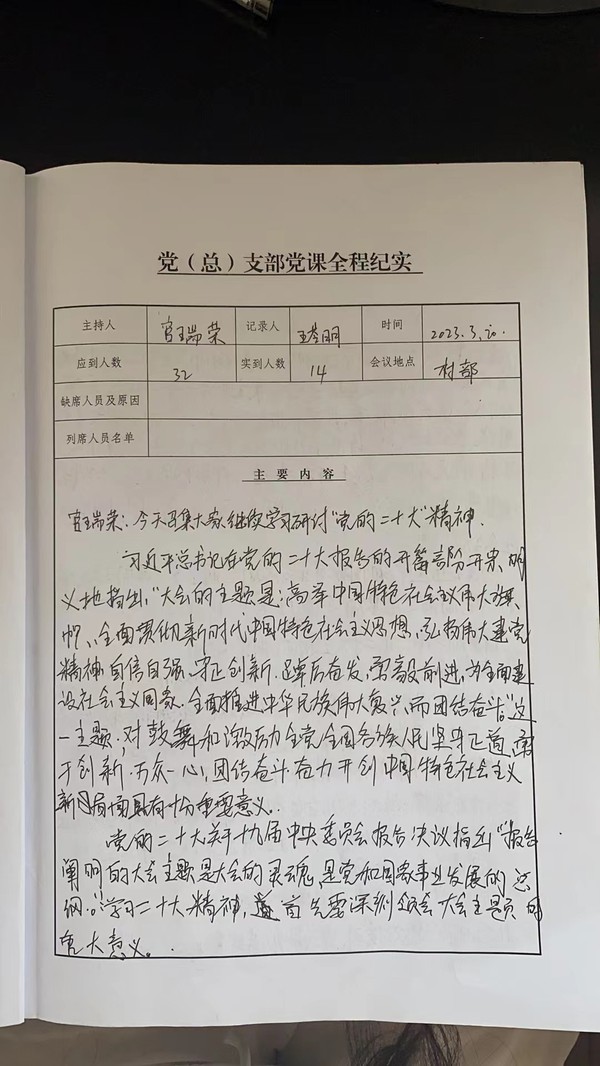 党（总）支部党课全程纪实
主持人 官瑞荣 记录人 时间 2023.3.20.
应到人数 32 实到人数 14 会议地点 村部
缺席人员及原因
列席人员名单
主要内容
官瑞荣：今天召集大家继续学习研讨“党的二十大”精神．
习近平总书记在党的二十大报告的开篇部分开宗明
义地指出，“大会的主题是：高举中国特色社会主义伟大旗
帜、全面贯彻新时代中国特色社会主义思想，弘扬伟大建党
精神，自信自强、守正创新，踔厉奋发，勇毅前进，为全面建
设社会主义国家、全面推进中华民族伟大复兴而团结奋斗。”这
一主题，对鼓舞和激励全党全国各族人民坚守正道，勇
于创新，万众一心，团结奋斗，奋力开创中国特色社会主义
新局面具有十分重要意义．
党的二十大关于十九届中央委员会报告决议指出“报告
阐明的大会主题是大会的灵魂，是党和国家事业发展的总
纲。”学习二十大精神，首先要深刻领会大会主题的
重大意义。